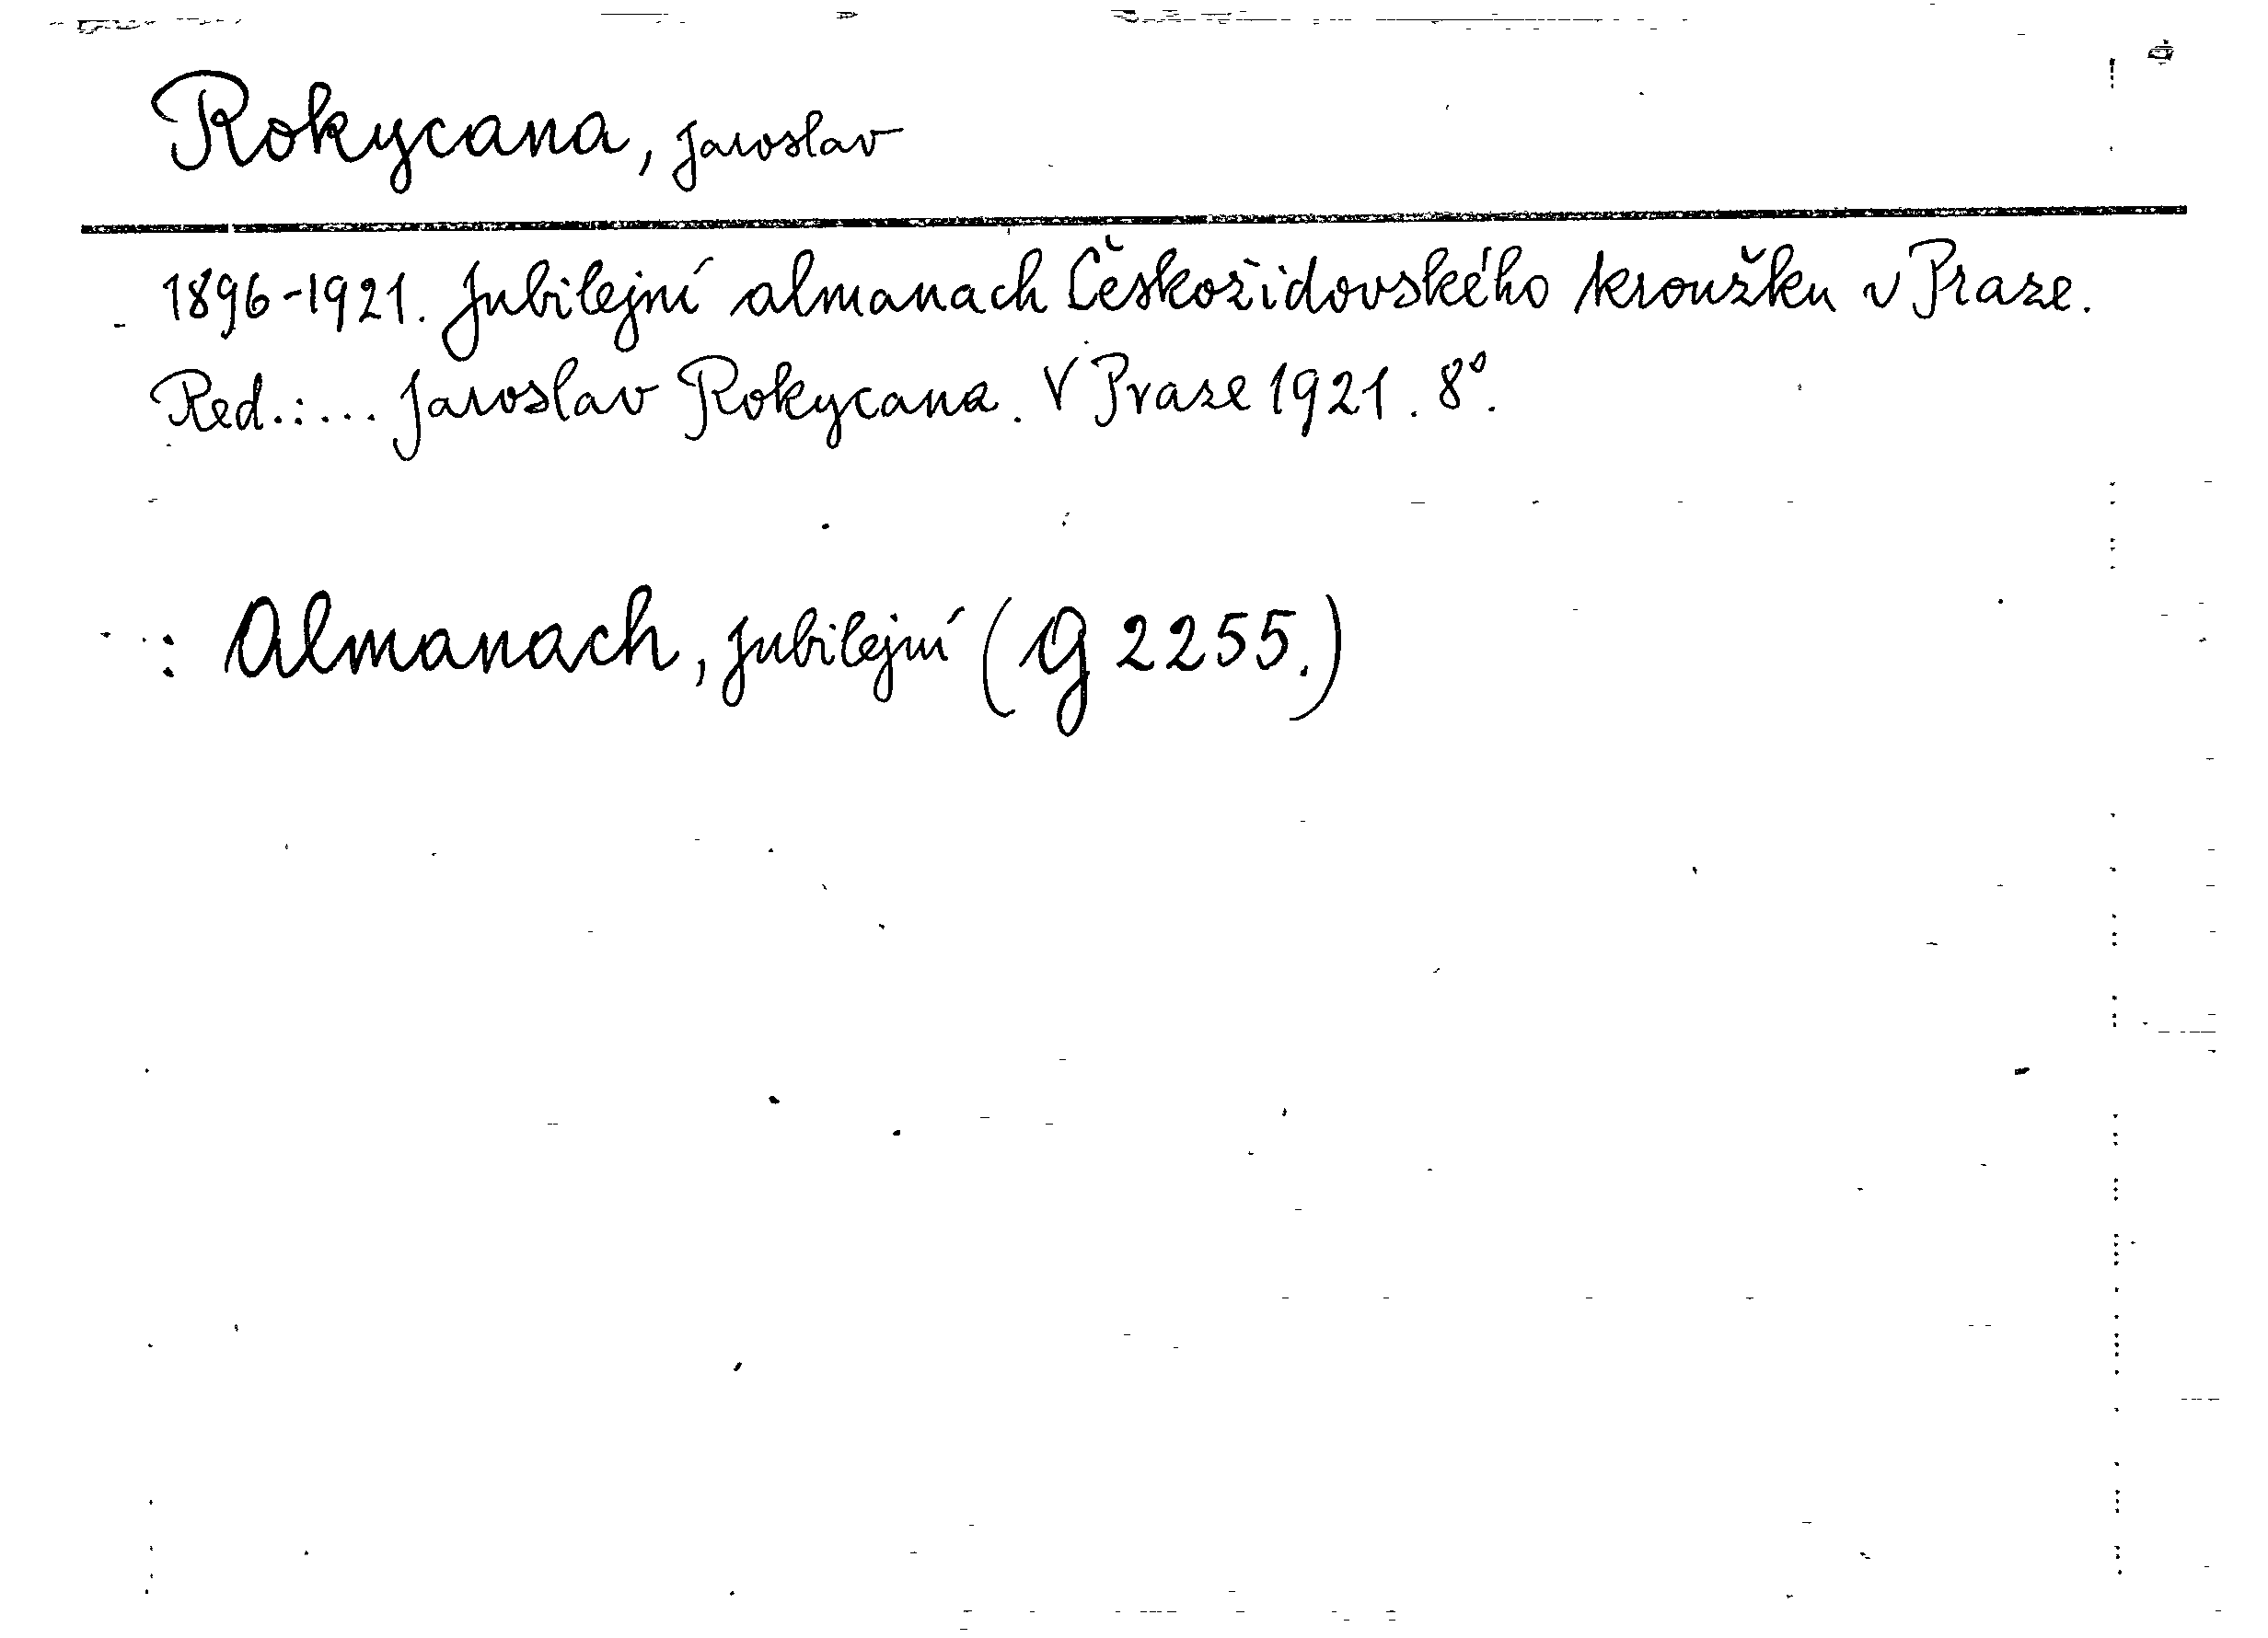 Rokycana, Jaroslav
1896-1921. Jubilejní almanach Českožidovského kroužku v Praze.
Red.:... Jaroslav Rokycana. V Praze 1921. 8°.
: Almanach, jubilejní (G 2255.)